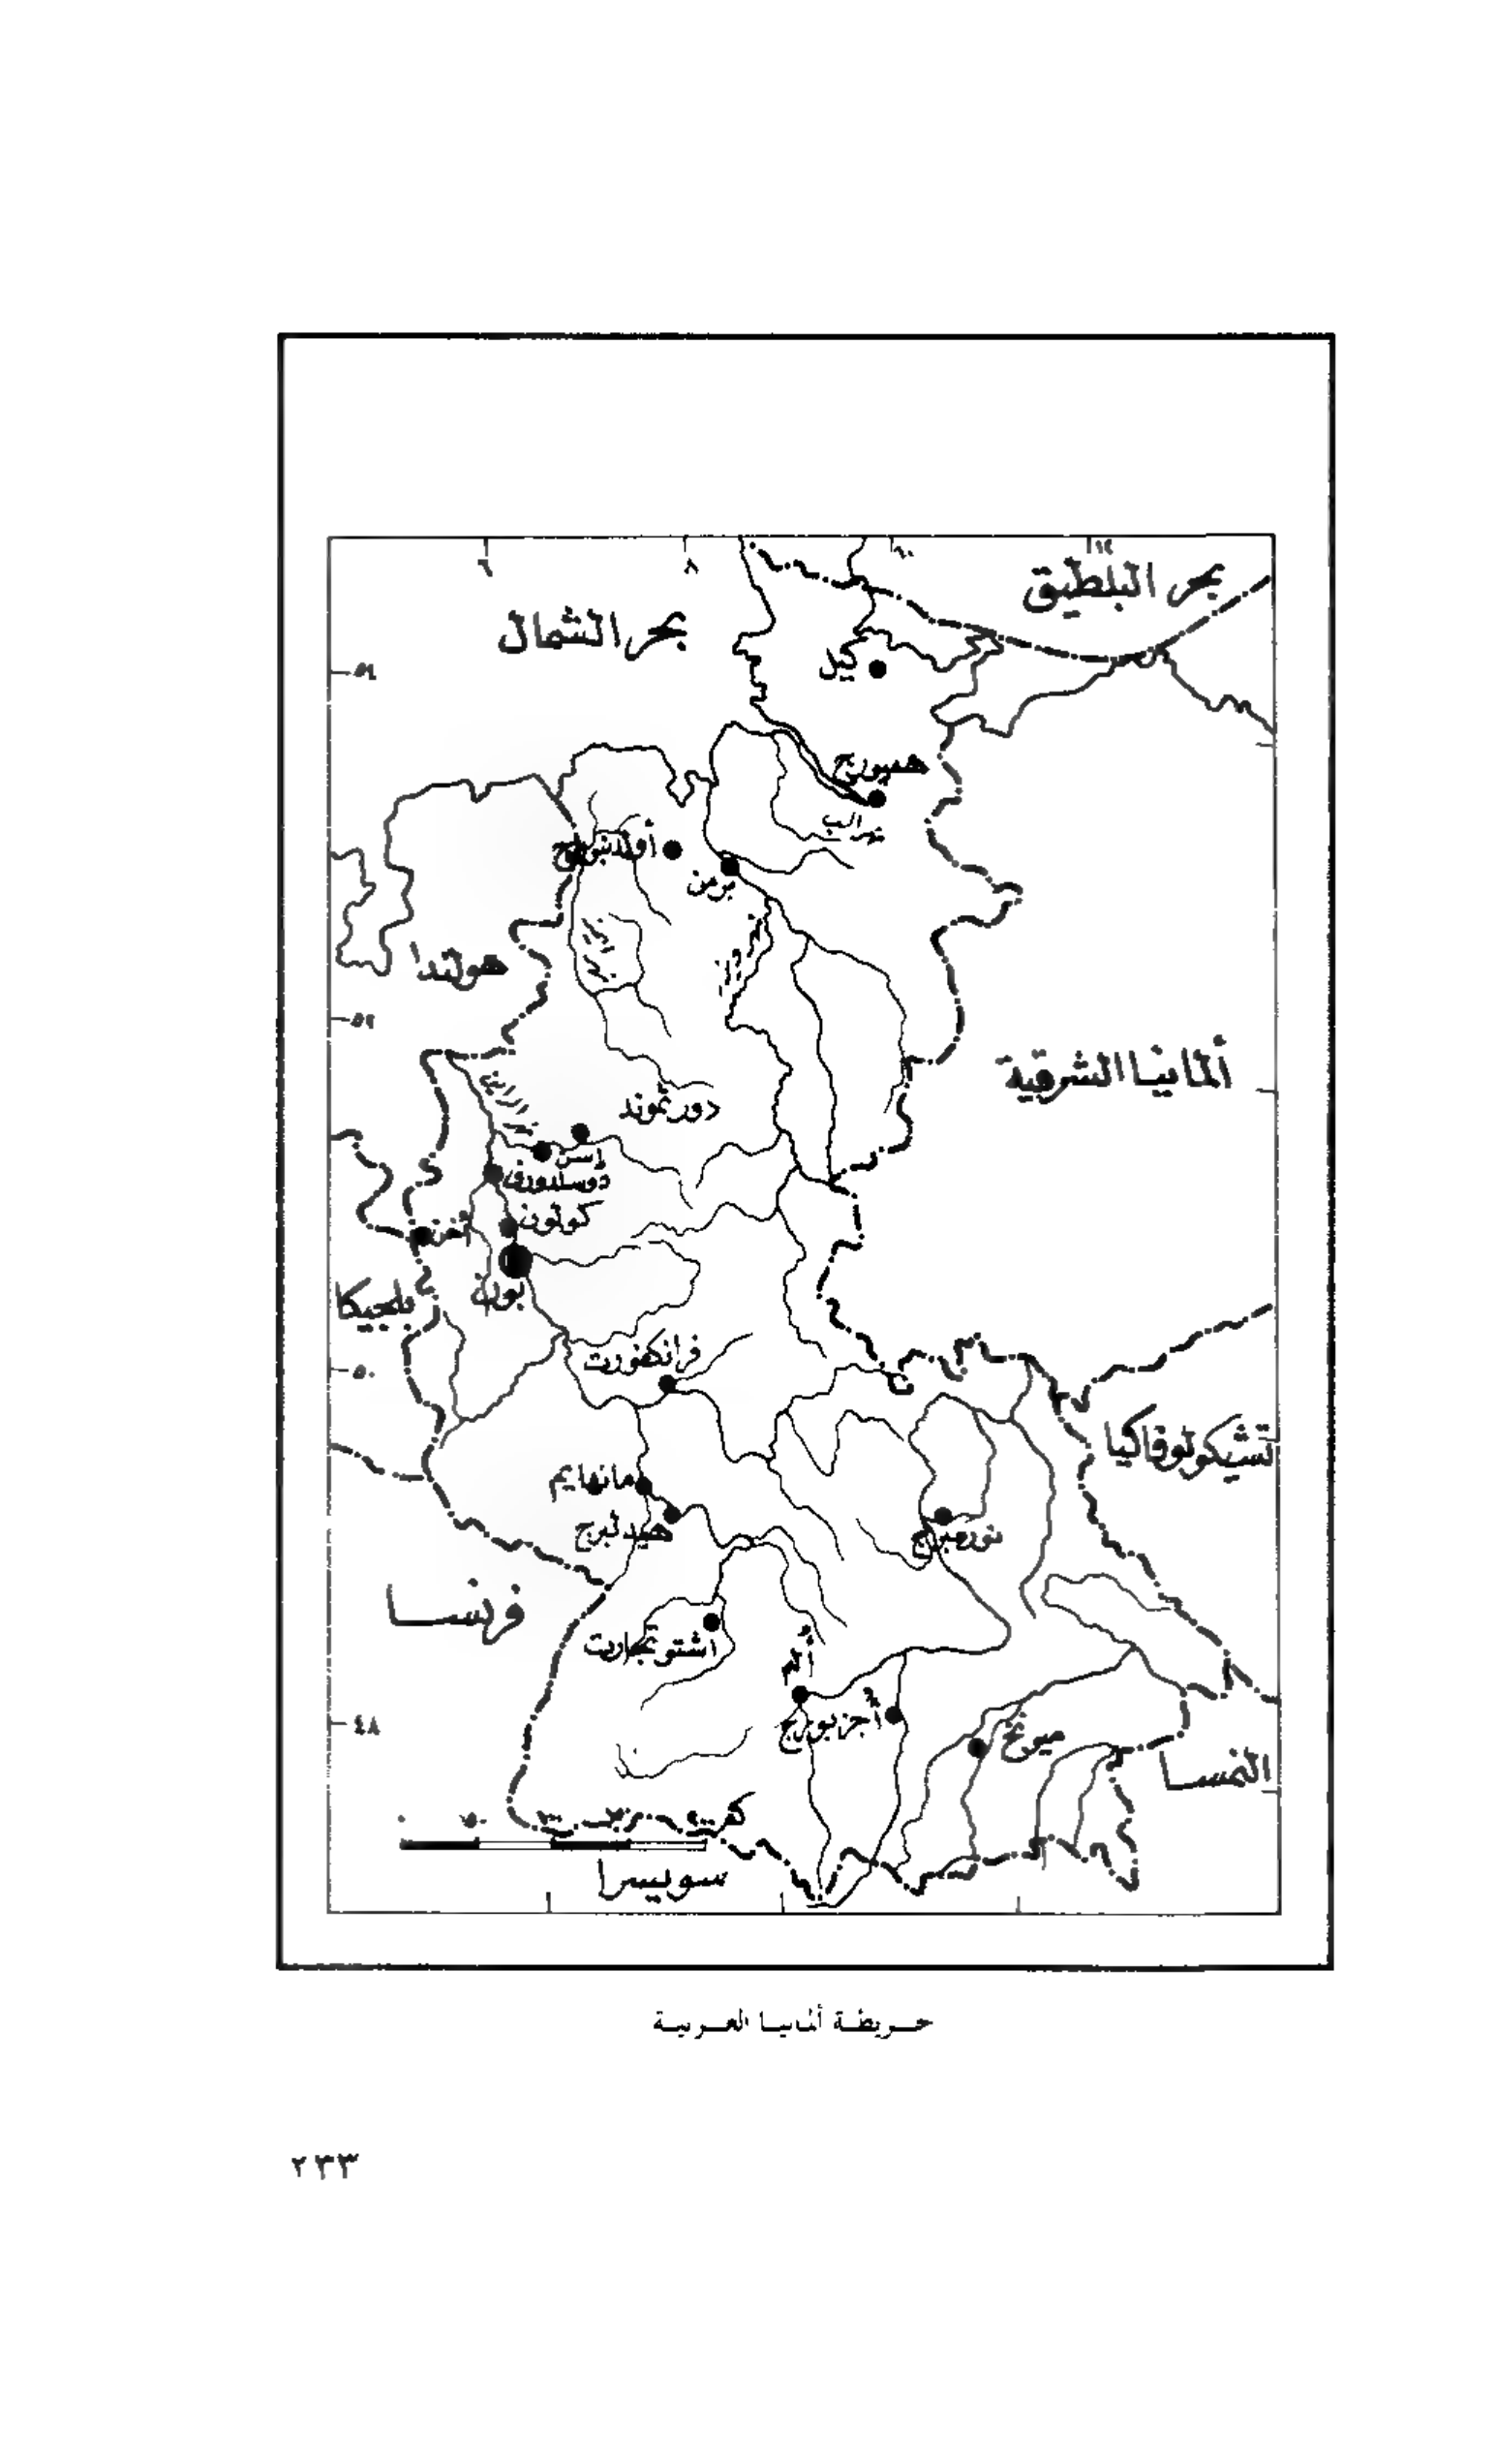 ٦ ٨ ١٠ ١٢
بحر البلطيق
بحر الشمال
كيل
همبورج
نهر الب
برمن
هولندا
ألمانيا الشرقية
دورتموند
إسن
دوسلدورف
كولون
بون
بلجيكا
فرانكفورت
٥٠
تشيكولوفاكيا
مانهايم
هيدلبرج
نورمبرج
فرنسا
اشتوتجارت
ألم
أجزبورج
٤٨
ميونخ
النمسا
سويسرا
خريطة ألمانيا الغربية
٢٣٣